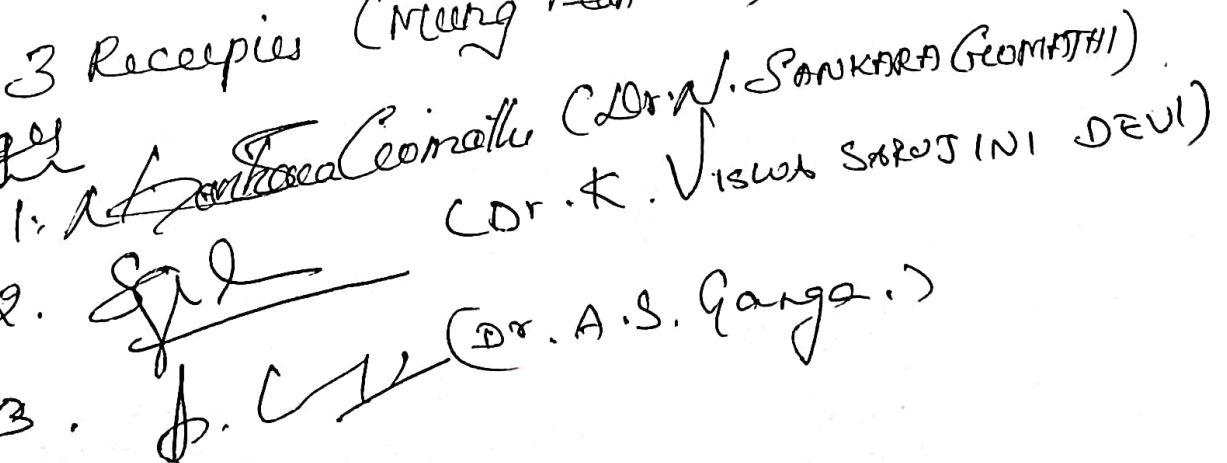 3 Receepies (Mung
1. N Sankara Gomathi (Dr. N. SANKARA GOMATHI)
2. (Dr. K. VISWA SAROJINI DEVI)
3. (Dr. A.S. Ganga.)